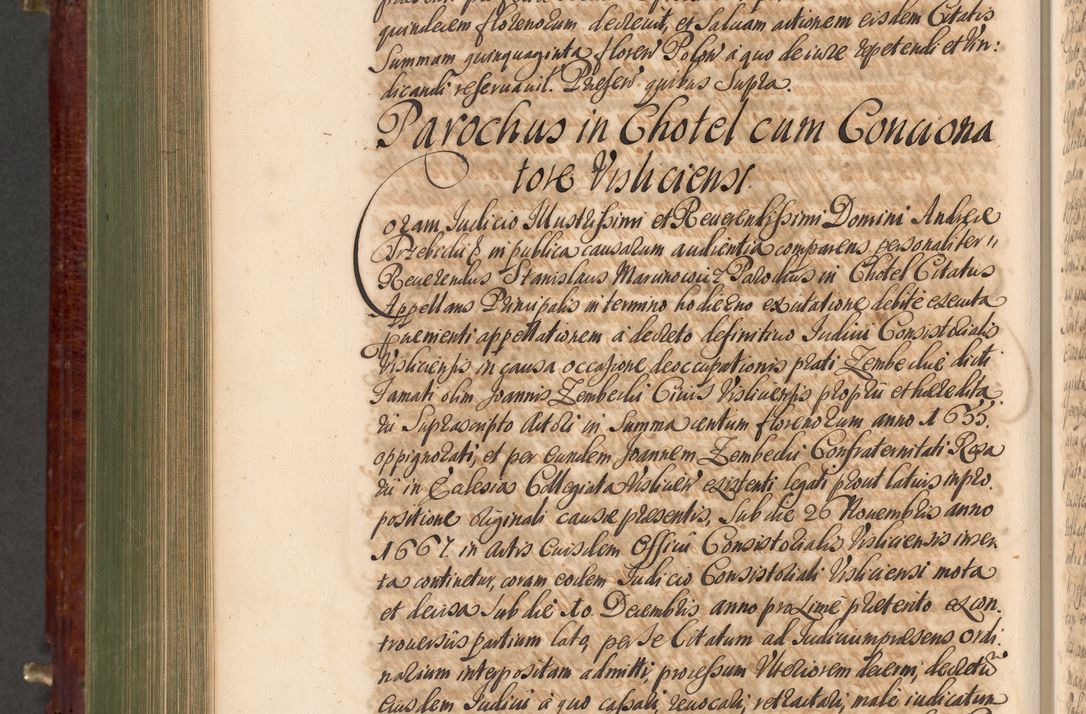 quindecim florenorum decreuit, et Saluam actionem eisdem Citatis
Summam quinquaginta floren Polon a quo de iure repetendi et vin:
dicandi reseruauit. Presen quibus Supra.
Parochus in Chotel cum Conciona
tore Visliciensi
Coram Judicio Illustrissimi et Reuerendissimi Domini Andreæ
in publica causarum audientia comparens personaliter
Reuerendus Stanislaus Maranowicz Parochus in Chotel Citatus
Appellans Principalis in termino hodierno ex citatione debite executa
appellationem a decreto definitiuo Judicii Consistorialis
Visliciensis in causa occasione deoccupationis prati Zembeckie dicti
Famati olim Joannis Zembecki Ciuis Visliciensis proprii et hæredita
rii Suprascripto Actori in Summa centum florenorum anno 1655.
oppignorati, et per eundem Joannem Zembecki Confraternitati Rosa
rii in Ecclesia Collegiata Vislicien existenti legati prout latius in pro.
positione originali causæ præsentis, Sub die 26 Nouembris anno
1667. in Actis Eiusdem Officii Consistorialis Visliciensis inser
ta continetur, coram eodem Judicio Consistoriali Visliciensi mota
et decisa Sub die 10 Decembris anno proxime præterito ex con.
trouersiis partium lato, per se Citatum ad Judicium præsens Ordi.
narium interpositam admitti, processum Vlteriorem decerni, decretu
eiusdem Judicii a quo cassari, reuocari, retractari, male iudicatum